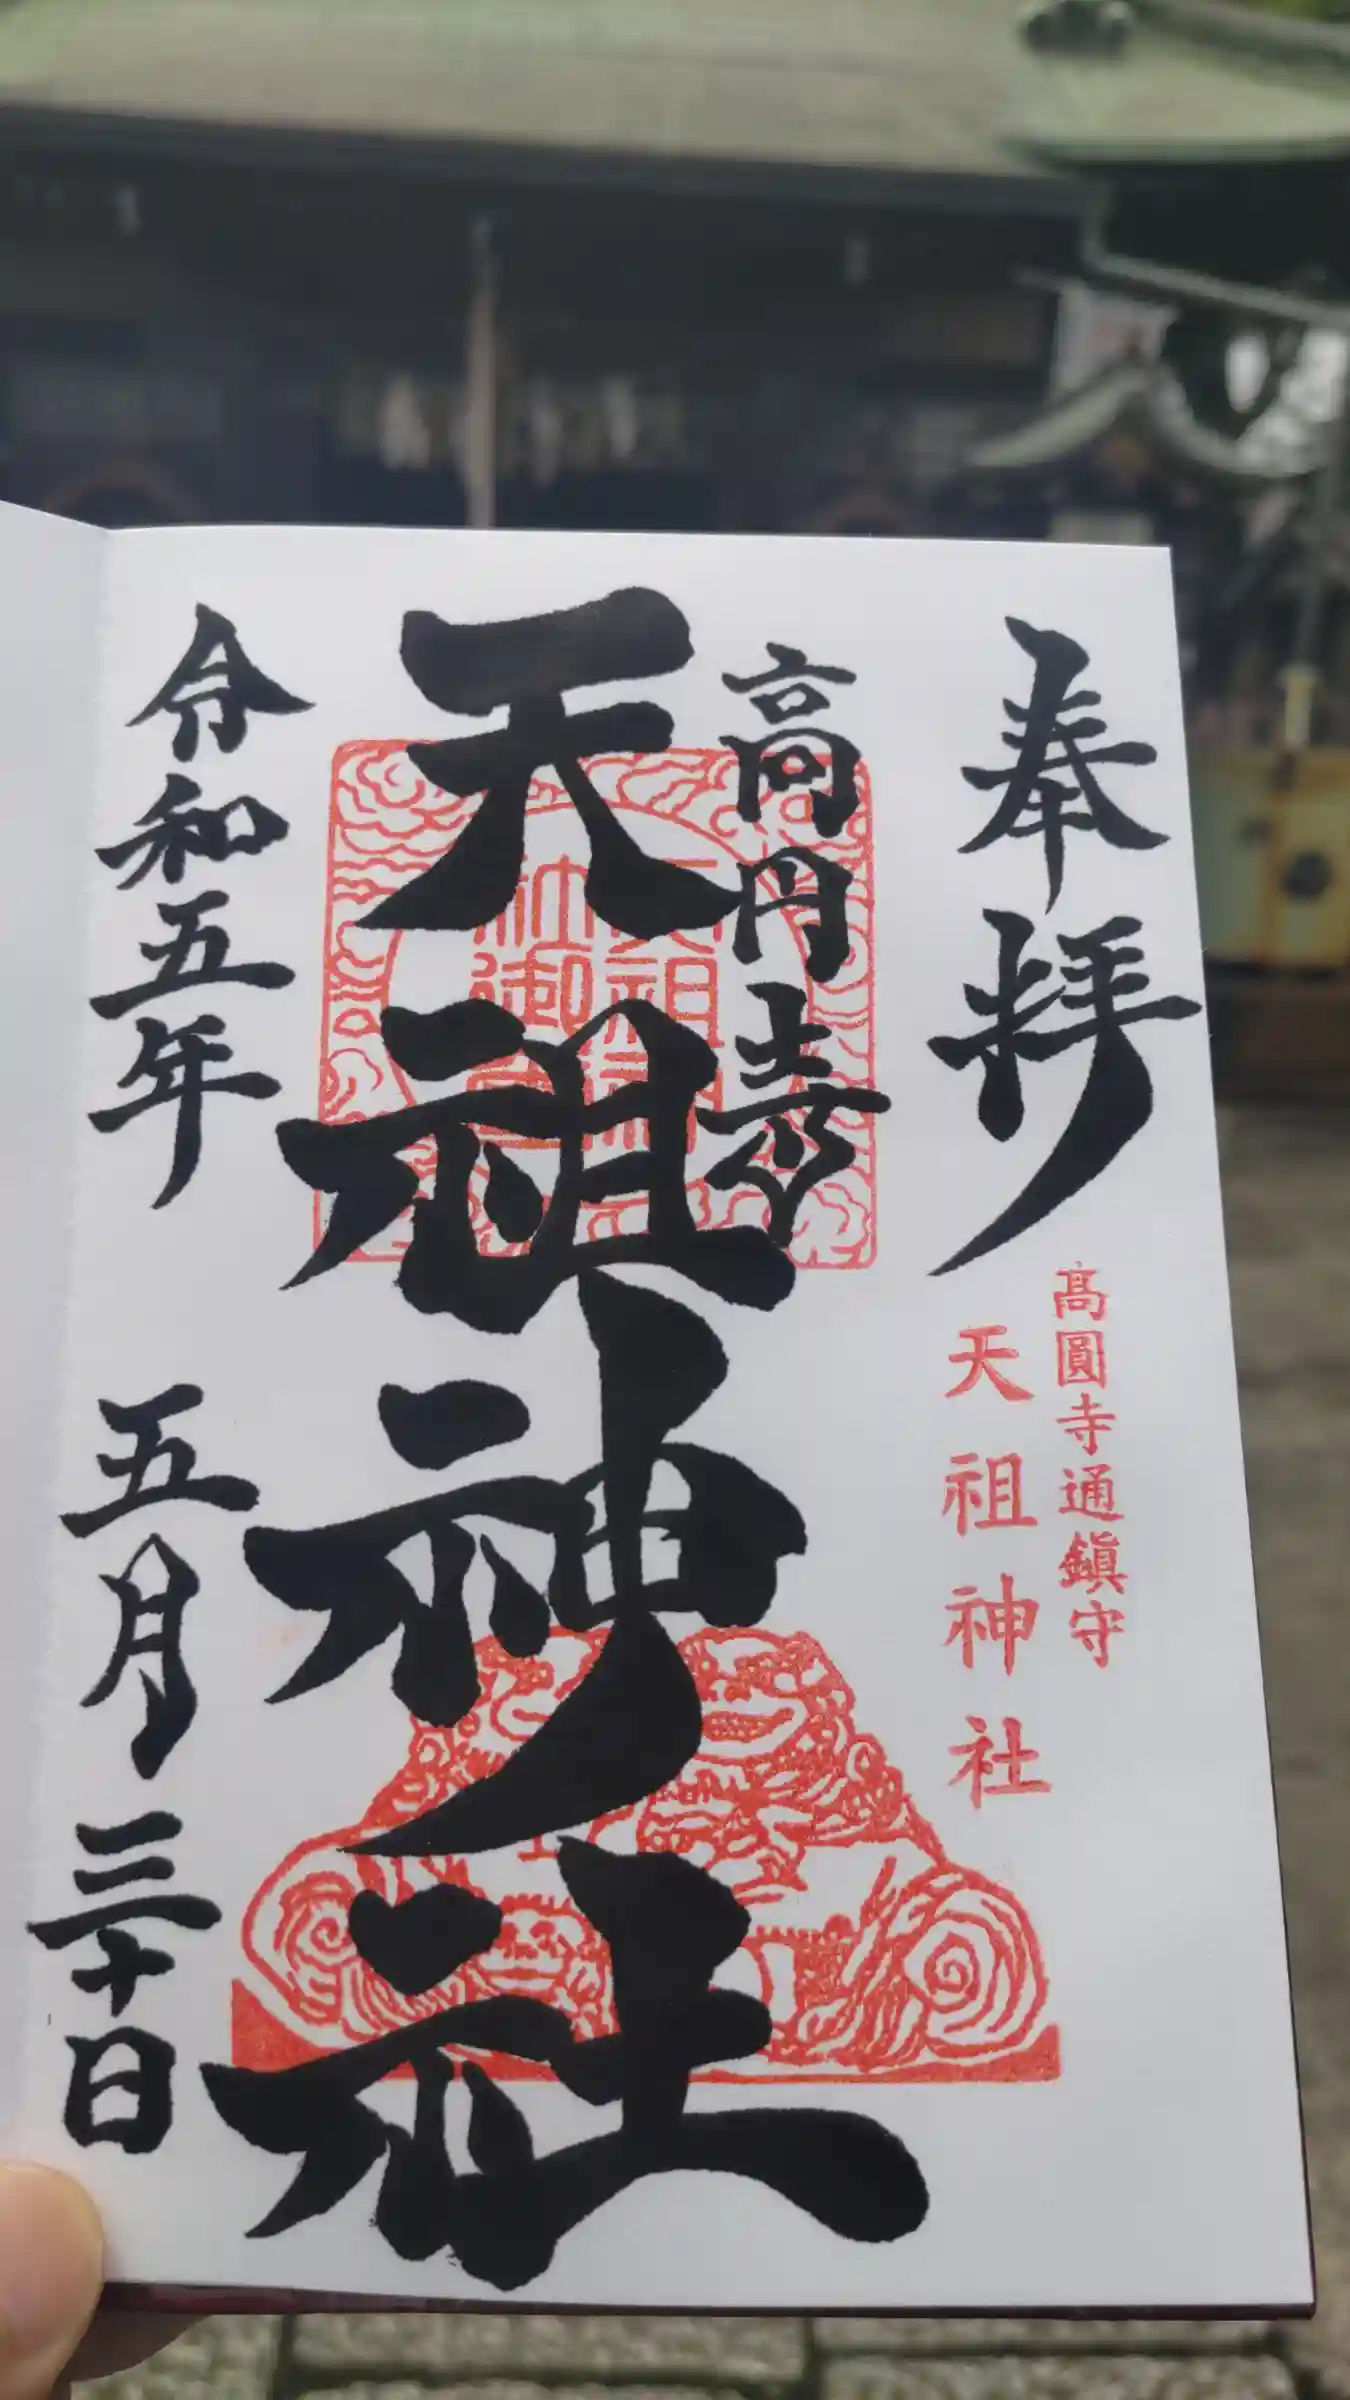 奉拝
高圓寺通鎮守
天祖神社
高円寺
天祖神社
天祖神
社御
令和五年 五月三十日